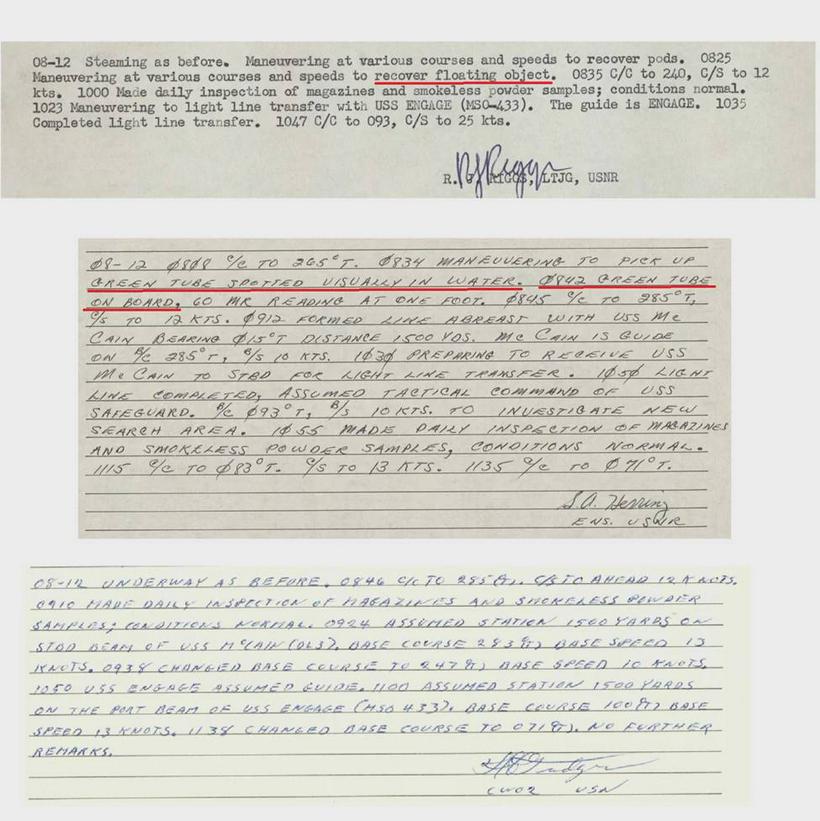 08-12 Steaming as before. Maneuvering at various courses and speeds to recover pods. 0825
Maneuvering at various courses and speeds to recover floating object. 0835 C/C to 240, C/S to 12
kts. 1000 Made daily inspection of magazines and smokeless powder samples; conditions normal.
1023 Maneuvering to light line transfer with USS ENGAGE (MSO-433). The guide is ENGAGE. 1035
Completed light line transfer. 1047 C/C to 093, C/S to 25 kts.
R. J. RIGGS, LTJG, USNR
Ø8-12 Ø8Ø8 C/C TO 265°T. Ø834 MANEUVERING TO PICK UP
GREEN TUBE SPOTTED VISUALLY IN WATER. Ø842 GREEN TUBE
ON BOARD, 60 MR READING AT ONE FOOT. Ø845 C/C TO 285°T,
C/S TO 12 KTS. Ø912 FORMED LINE ABREAST WITH USS MC
CAIN BEARING Ø15°T DISTANCE 1500 YDS. MC CAIN IS GUIDE
ON B/C 285°T, B/S 10 KTS. 1Ø3Ø PREPARING TO RECEIVE USS
MC CAIN TO STBD FOR LIGHT LINE TRANSFER. 1Ø5Ø LIGHT
LINE COMPLETED, ASSUMED TACTICAL COMMAND OF USS
SAFEGUARD. B/C Ø93°T, B/S 10 KTS. TO INVESTIGATE NEW
SEARCH AREA. 1Ø55 MADE DAILY INSPECTION OF MAGAZINES
AND SMOKELESS POWDER SAMPLES, CONDITIONS NORMAL.
1115 C/C TO Ø83°T. C/S TO 13 KTS. 1135 C/C TO Ø71°T.
S.A. Herring
ENS. USNR
08-12 UNDERWAY AS BEFORE. 0846 C/C TO 285(T). C/S TO AHEAD 12 KNOTS.
0910 MADE DAILY INSPECTION OF MAGAZINES AND SMOKELESS POWDER
SAMPLES; CONDITIONS NORMAL. 0924 ASSUMED STATION 1500 YARDS ON
STBD BEAM OF USS McCAIN (DL3). BASE COURSE 283(T) BASE SPEED 13
KNOTS. 0938 CHANGED BASE COURSE TO 247(T) BASE SPEED 10 KNOTS.
1050 USS ENGAGE ASSUMED GUIDE. 1100 ASSUMED STATION 1500 YARDS
ON THE PORT BEAM OF USS ENGAGE (MSO 433). BASE COURSE 100(T) BASE
SPEED 13 KNOTS. 1138 CHANGED BASE COURSE TO 071(T). NO FURTHER
REMARKS.
CWO2 USN